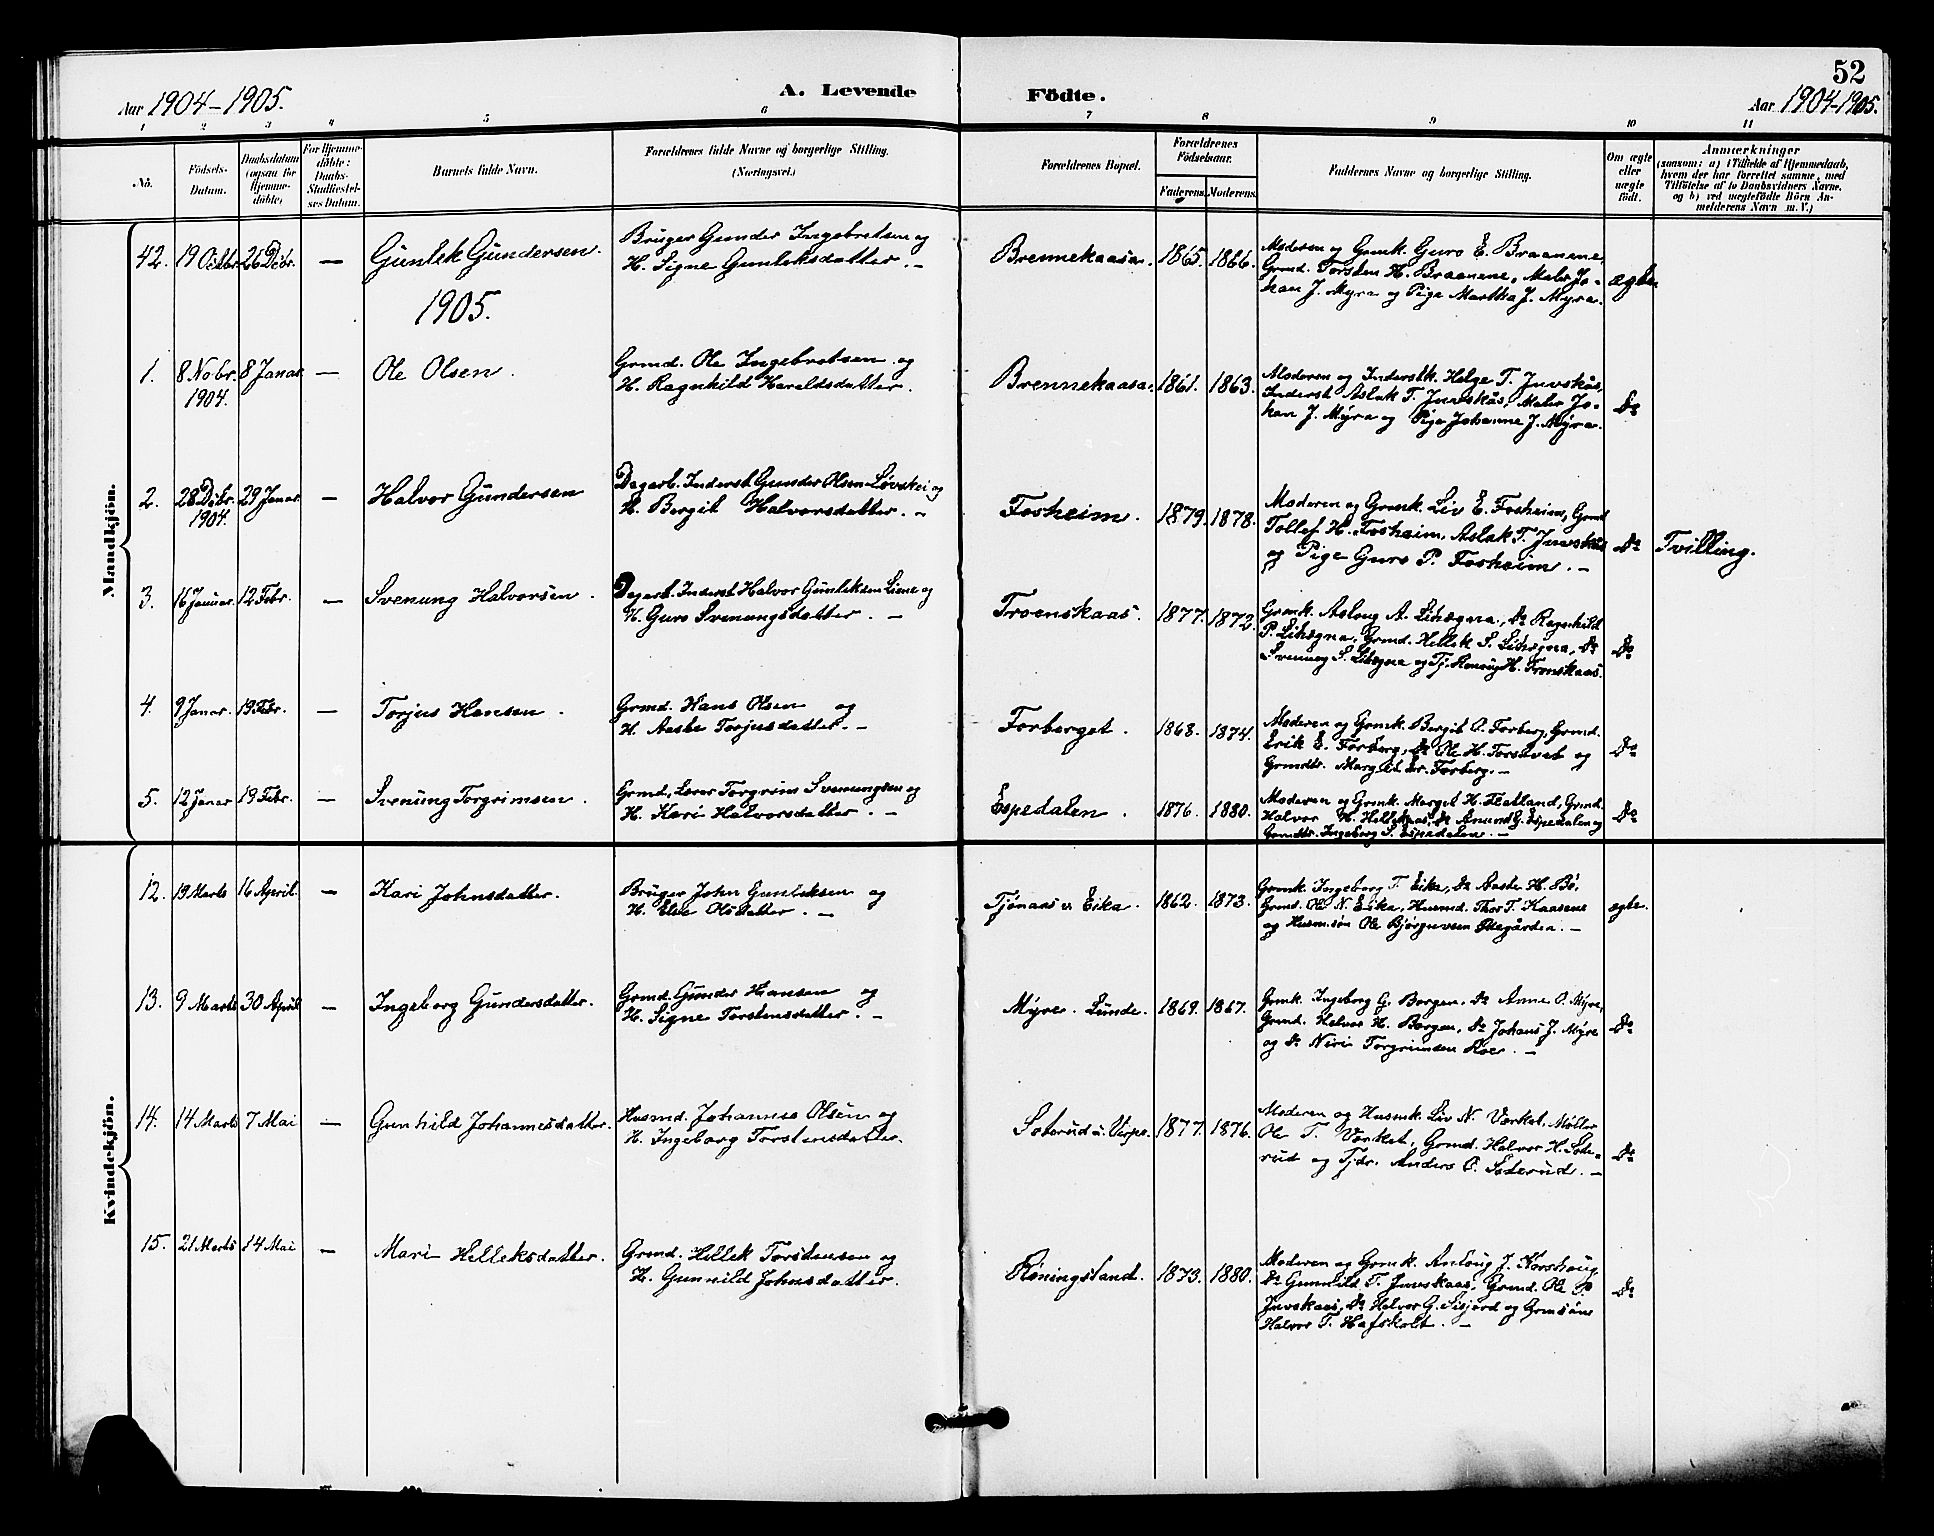 52
Aar 1904-1905.
A. Levende
Födte.
Aar 1904-1905.
1 2 3 4 5 6 7 8 9 10 11
No.
Födsels-
Datum.
Daabsdatum
(ogsaa for
Hjemme-
döbte)
For Hjemme-
döbte:
Daabs-
Stadfæstel-
ses Datum.
Barnets fulde Navn.
Forældrenes fulde Navne og borgerlige Stilling.
(Næringsvei.)
Forældrenes Bopæl.
Forældrenes
Födselsaar.
Faderens. Moderens.
Faddernes Navne og borgerlige Stilling.
Om ægte
eller
uægte
födt.
Anmærkninger
(saasom: a) i Tilfælde af Hjemmedaab,
hvem der har forrettet samme, med
Tilföielse af to Daabsvidners Navne,
og b) ved uægtefödte Börn An-
melderens Navn m. V.)
Mandkjön.
42. 19 Octbr. 26 Dcbr. — Gunlek Gundersen.
Brüger Gunder Ingebretsen og
H. Signe Gunleksdatter. —
Brennekaasa. 1865. 1866.
Moderen og Grmk. Guro E. Braanene,
Grmd. Torsten H. Braanene, Maler Jo-
han J. Myra og Pige Martha J. Myra.
ægte
1905.
1. 8 Nobr. 1904. 8 Januar. — Ole Olsen.
Grmd. Ole Ingebretsen og
H. Ragnhild Haraldsdatter.
Brennekaasa. 1861. 1863.
Moderen og Inderstk. Helge T. Juvskås,
Inderst Aslak T. Juvskås, Maler Jo-
han J. Myra og Pige Johanne J. Myra.
Do
2. 28 Dcbr. 1904. 29 Januar. — Halvor Gundersen
Dagarb. Inderst Gunder Olsen Løvskei og
H. Bergit Halvorsdatter. —
Fosheim. 1879. 1878.
Moderen og Grmk. Liv E. Fosheim, Grmd
Tollef H. Fosheim, Aslak T. Juvskås
og Pige Guro P. Fosheim. —
Do Tvilling.
3. 16 Januar. 12 Febr. — Svenung Halvorsen.
Dagarb. Inderst Halvor Gunleksen Liane og
H. Guro Svenungsdatter. —
Troenskaas. 1877. 1872.
Grmk. Aslaug A. Lihægna, Do Ragnhild
P. Lihægna, Grmd. Hellek S. Lihægna, Do
Svenung S. Lihægna og Tj. H. Tronskaas.
Do
4. 9 Januar. 19 Febr. — Torjus Hansen.
Grmd. Hans Olsen og
H. Aaste Torjusdatter. —
Forberget. 1868. 1874.
Moderen og Grmk. Bergit O. Forberg, Grmd.
Erik E. Forberg, Do Ole H. Torstvet og
Grmdtr. Margit Forberg. —
Do
5. 12 Januar 19 Febr. — Svenung Torgrimsen.
Grmd, Lærer Torgrim Svenungsen og
H. Kari Halvorsdatter. —
Espedalen. 1876. 1880.
Moderen og Grmk. Margit H. Flatland, Grmd.
Halvor H. Hellekaas, Do Amund G. Espedalen og
Grmdtr. Ingeborg S. Espedalen. —
Do
Kvindekjön.
12. 19 Marts 16 April. — Kari Johnsdatter.
Brüger John Gunleksen og
H. Else Olsdatter. —
Tjønaas u. Eika. 1862. 1873.
Grmk. Ingeborg T. Eika, Do Aaste H. Bö,
Grmd. Ole N. Eika, Husmd. Thor T. Kaasene
og Husm.søn Ole Bjørgusen. —
ægte.
13. 9 Marts 30 April — Ingeborg Gundersdatter.
Grmd. Gunder Hansen og
H. Signe Torstensdatter. —
Myre. Lunde. 1869. 1867.
Grmk. Ingeborg G. Borgen, Do Anne O. Myre,
Grmd. Halvor H. Borgen, Do Johans J. Myre
og Do Niri Torgrimsen Roe. —
Do
14. 14 Marts 7 Mai — Gunhild Johannesdatter.
Husmd. Johannes Olsen og
H. Ingeborg Torstensdatter.
Soterud u. Verpe. 1877. 1876.
Moderen og Husmk. Liv N. Værket, Møller
Ole T. Værket, Grmd. Halvor H. Sote-
rud og Tjdr. Anders O. Soterud. —
Do
15. 21 Marts 14 Mai — Mari Helleksdatter.
Grmd. Hellek Torstensen og
H. Gunnild Johnsdatter.
Røningsland. 1873. 1880.
Moderen og Grmk. Anlaug J. Norshaug
Do Gunnild T. Juvskaas, Grmd. Ole P.
Juvskaas, Do Halvor G. Sisjord og Grmsøn
Halvor T. Hafskolt. —
Do